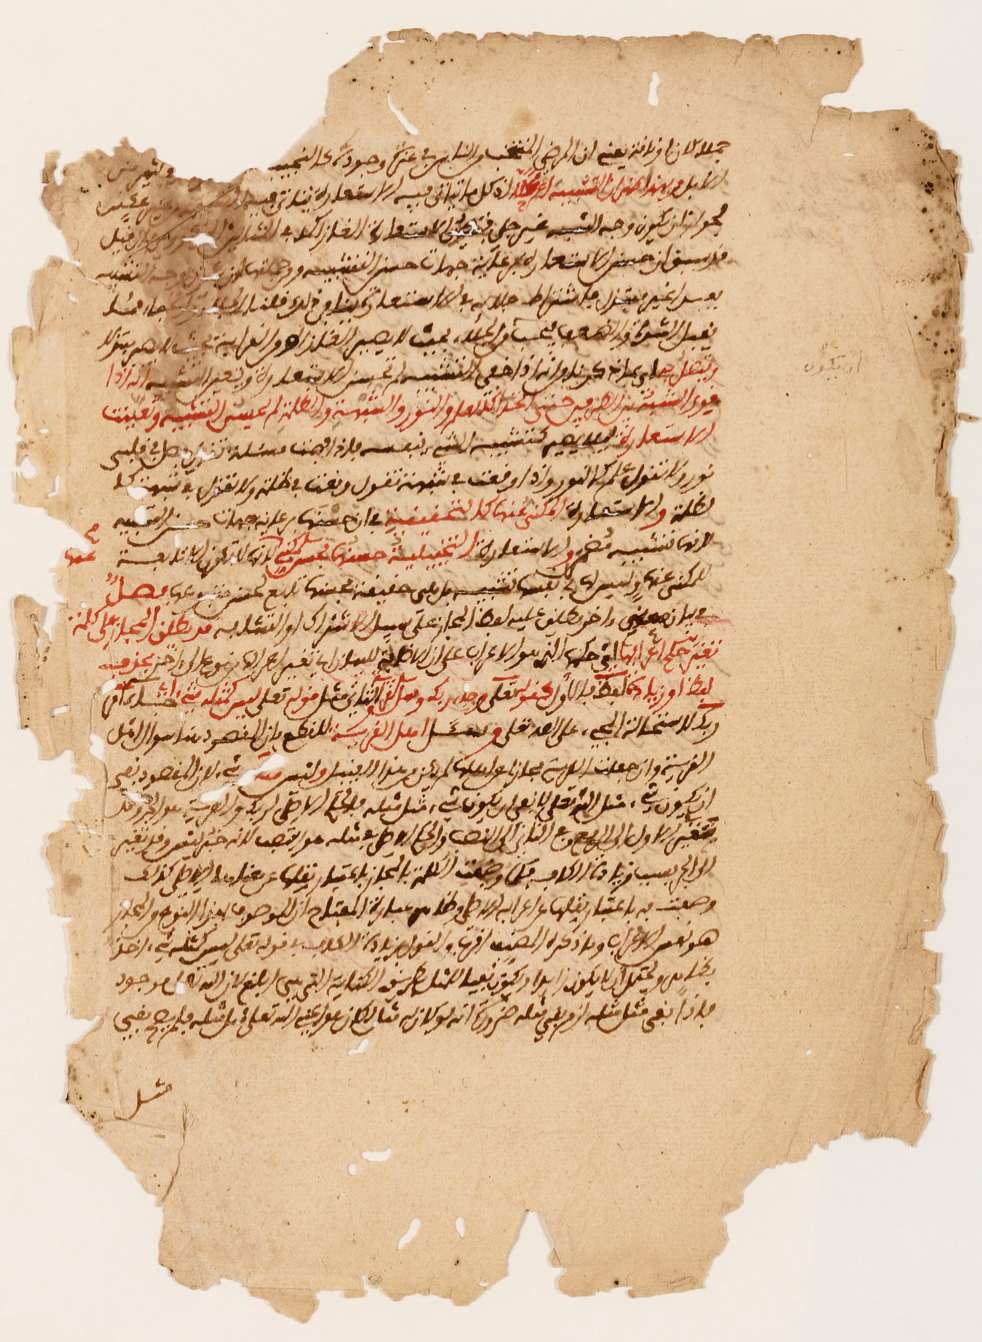 جملا لان از يد انه يعنى ان المرضي المنتخب من الناس في عزة وجوده كالنجيبة
الابل وبهذا ظهر ان التشبيه اعم محلا اذ كل ما يتاتى فيه الاستعارة يتاتى فيه غير عكس
لجواز ان يكون وجه الشبه غير جلي فتصير الاستعارة الغازا كما في المثالين فان قيل
قد سبق ان حسن الاستعارة برعاية جهات حسن التشبيه ومن جملتها ان يكون وجه التشبيه
بعيدا غير مبتذل فاشتراط جلائه في الاستعارة ينافي ذلك قلنا الجلاء والخفاء مما
يقبل الشدة والضعف فيجب من الجلاء بحيث لا يصير الغازا ومن الغرابة بحيث لا يصير مبتذلا
ويتصل به اي بما ذكرنا من انه اذا خفي التشبيه لم تحسن الاستعارة ويتعين التشبيه انه اذا
قوي الشبه بين الطرفين حتى اتحدا كالعلم والنور والشبهة والظلمة لم يحسن التشبيه وتعينت
الاستعارة ليلا يصير كتشبيه الشيء بنفسه فاذا فهمت مسئلة تقول حصل في قلبي
نور ولا تقول علم كالنور واذا وقعت في شبهة تقول وقعت في ظلمة ولا تقول في شبهة كا
لظلمة والاستعارة المكنى عنها كالتحقيقية في ان حسنها برعاية جهات حسن التشبيه
لانها تشبيه مضمر والاستعارة التخييلية حسنها بحسب حسن المكنى لانها لا تكون الا تابعة
عنها
للمكنى عنها وليس لها في نفسها تشبيه بل هي حقيقة فحسنها تابع لحسن متبوعها فصل
في بيان معنى اخر يطلق عليه لفظ المجاز على سبيل الاشتراك او التشابه قد يطلق المجاز على كلمة
تغير حكم اعرابها اي حكمها الذي هو الاعراب على ان الاضافة للبيان اي تغير اعرابها من نوع الى اخر بحذف
لفظ او زيادة لفظ فالاول كقوله تعلى وجاء ربك والثاني مثل قوله تعلى ليس كمثله شيء
ربك لاستحالة المجيء على الله تعلى واسئل القرية اي اهل القرية للقطع بان المقصود هنا سوال اهل
القرية وان جعلت القرية مجازا عن اهلها لم يكن من هذا القبيل وليس مثله شيء لان المقصود نفي
ان يكون شيء مثل الله تعلى لا نفي ان يكون شيء مثل مثله فالحكم الاصلي لربك والقرية هو الجر وقد
تغير في الاول الى الرفع وفي الثاني الى النصب والحكم الاصلي في مثله هو النصب لانه خبر ليس وقد تغير
الى الجر بسبب زيادة الكاف فكما وصفت الكلمة بالمجاز باعتبار نقلها عن معناها الاصلي كذلك
وصفت به باعتبار نقلها عن اعرابها الاصلي وظاهر عبارة المفتاح ان الموصوف بهذا النوع من المجاز
هو نفس الاعراب وما ذكره المصنف اقرب والقول بزيادة الكاف في قوله تعلى ليس كمثله شيء اخذ
بالظاهر ويحتمل ان لا يكون زايدا ويكون نفيا للمثل بطريق الكناية التي هي ابلغ لان الله تعلى موجود
فاذا نفى مثل مثله لزم نفي مثله ضرورة انه لو كان له مثل لكان هو اعني الله تعلى مثل مثله فلم يصح نفي
مثل
ان يكون